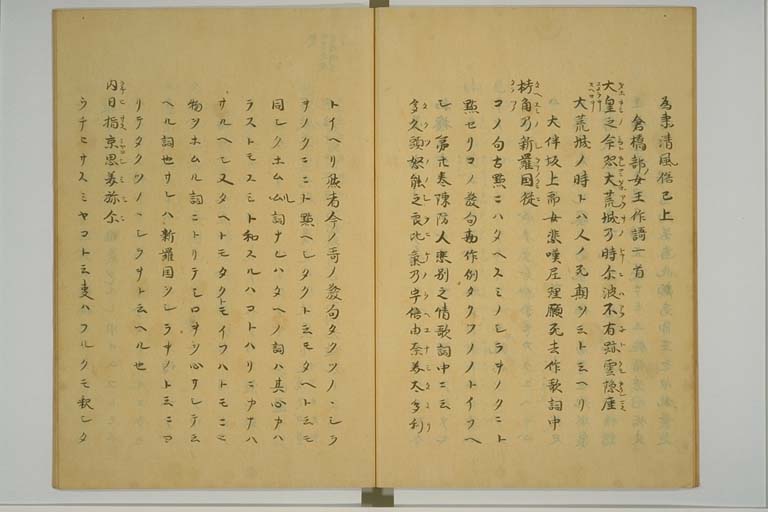 為秉清風俗已上
倉橋部女王作謌一首
大皇之命恐大荒城乃時尓波不有跡雲隠座
大荒城ノ時トハ人ノ死期ヲ云トミヘリ
大伴坂上郎女悲嘆尼理願死去作歌詞中
栲角乃新羅国従
コノ句古點ニハタヘスミノシラキノクニト
點セリコノ發句毎作例タクツノノトイフヘ
シ第廿巻陳防人悲別之情歌詞中ニ云
多久頭怒能之良比氣乃宇倍由奈美太多利
トイヘリ彼者今ノ哥ノ發句タクツノヽシラ
キノクニト點ヘシタクト云モタヘト云モ
同シクホムル詞ナレハタヘノ詞ハ其心カハ
ラストモスミト和スルハコトハリニカナハ
サルヘシ又タヘトモタクトモイフハトモニ
物ヲホムル詞ニトリテシロキヲ心サシテ云
ヘル詞也サレハ新羅国ヲシラキノト云ニコ
リテタクツノヽシラキト云ヘル也
内日指京思美弥尓
ウチヒサスミヤコト云事ハフルクモ釈シタ